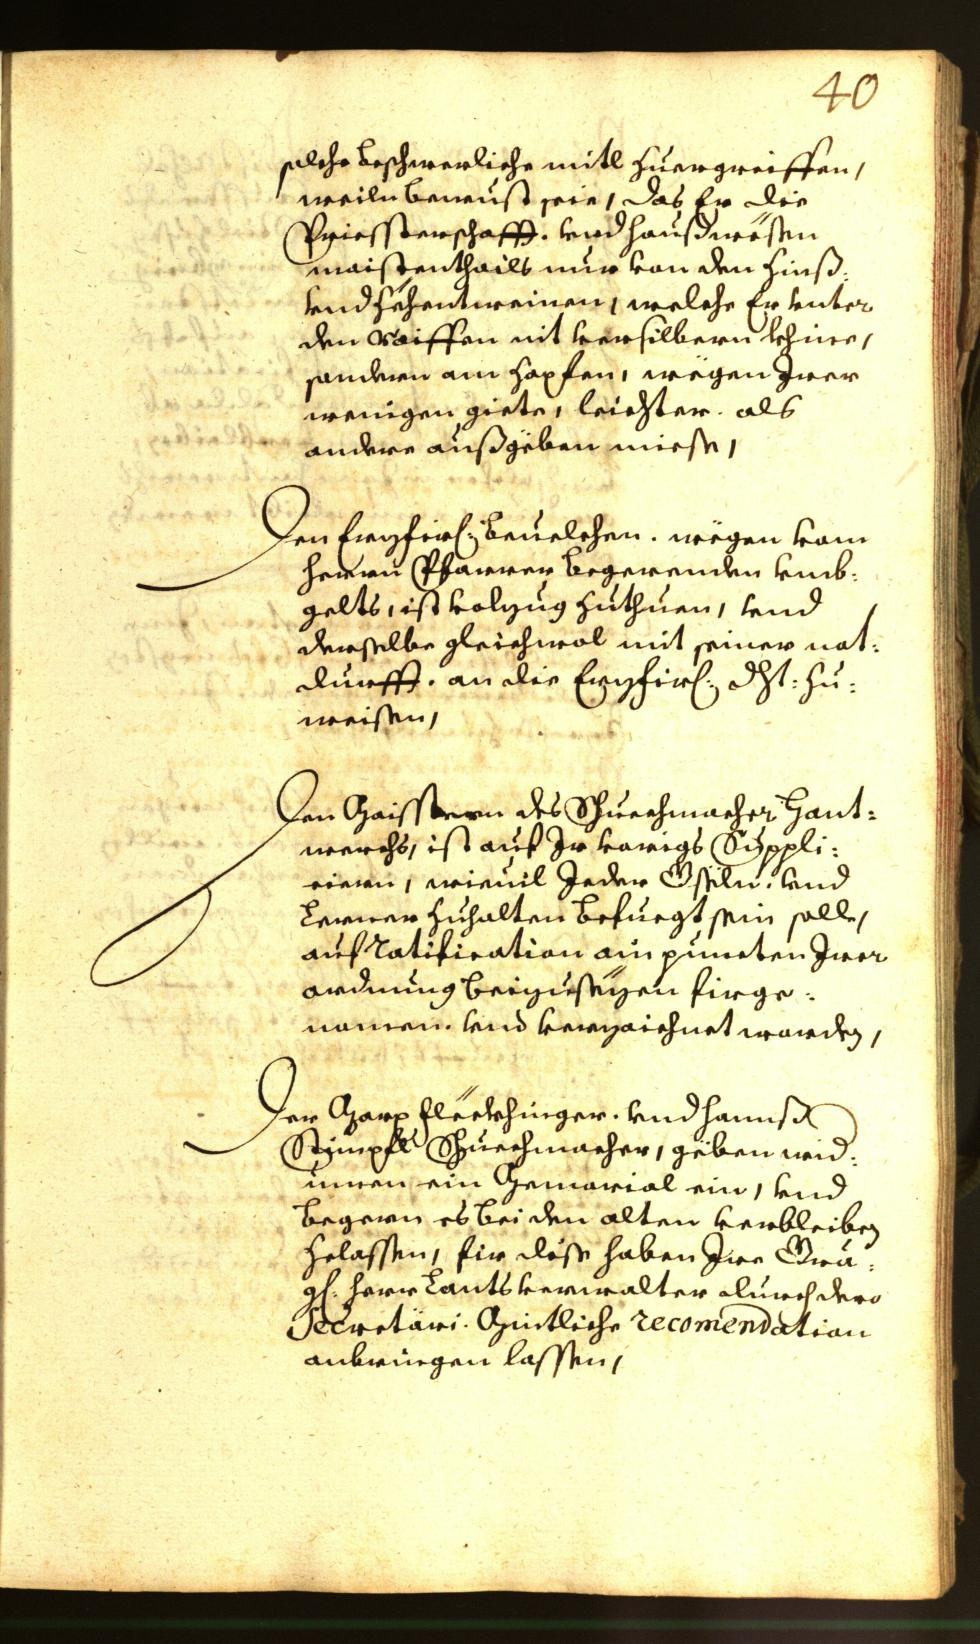 40
solche beschwerliche mitl zuergreiffen,
weiln bewust seie, das Er die
Priessterschafft. vnd haußwësen
maistenthails nur von den Zinß:
vnd Zëhentweinen, welche Er vnter
den Raiffen nit versilbern khine,
sondern am Zapfen, wëgen Irer
wenigen giete, leichter. als
andere außgëben miesse,
Den Erzfirl: beuelchen. wëgen vom
herrn Pfarrer begerenden vmb:
gelts, ist volzug zuthuen, vnd
derselbe gleichwol mit seiner not:
durfft. an die Erzfirl: Dht: zu:
weisen,
Den Maisstern des Schuechmacher Hant:
werchs, ist auf Ir vorigs Suppli:
ciern, wieuil Jeder Gseln. vnd
Lerner zuhalten befuegt sein solle,
auf ratification ain puncten Irer
ordnung beizusezen firge:
nomen. vnd verzaichnet worden,
Der Marx Fleëckhinger. vnd Hannß
Stümpfl Schuechmacher, gëben wid:
umben ein Memorial ein, vnd
begern es bei den alten verbleiben
zelassen, fir dise haben Ire Gna:
gl. herr Lantsverwalter durch dero
Secretäri. Mintliche recomendation
anbringen lassen,